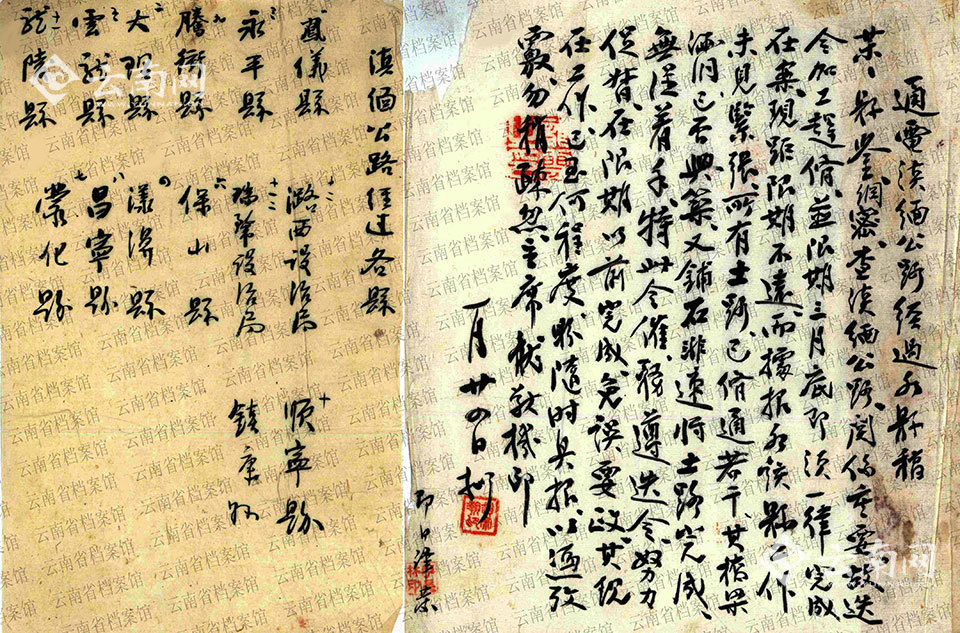 通電滇緬公路經過各縣稿
縣 綢密、查滇緬公路、関係重要、迭
令加工趕修、並限期三月底即須一律完成
在案、現距限期不遠、而據報各該縣工作
未見緊張、所有土路、已修通若干、其橋梁
涵洞、已否興築、又鋪石非速將土路完成、
無從着手、特此令催、務遵迭令、努力
促督、在限期以前完成、免誤要政、其現
在工作、已至何程度、隨時具報、以憑攷
覈、勿稍疎忽、主席龍 機印
一月廿四日擬
即日譯發
滇緬公路經過各縣
鳳儀縣 潞西設治局 順寧縣
永平縣 瑞麗設治局 鎮康縣
騰衝縣 保山縣
大理縣 漾濞縣
雲龍縣 昌寧縣
龍陵縣 蒙化縣
云南网
云南网
云南省档案馆